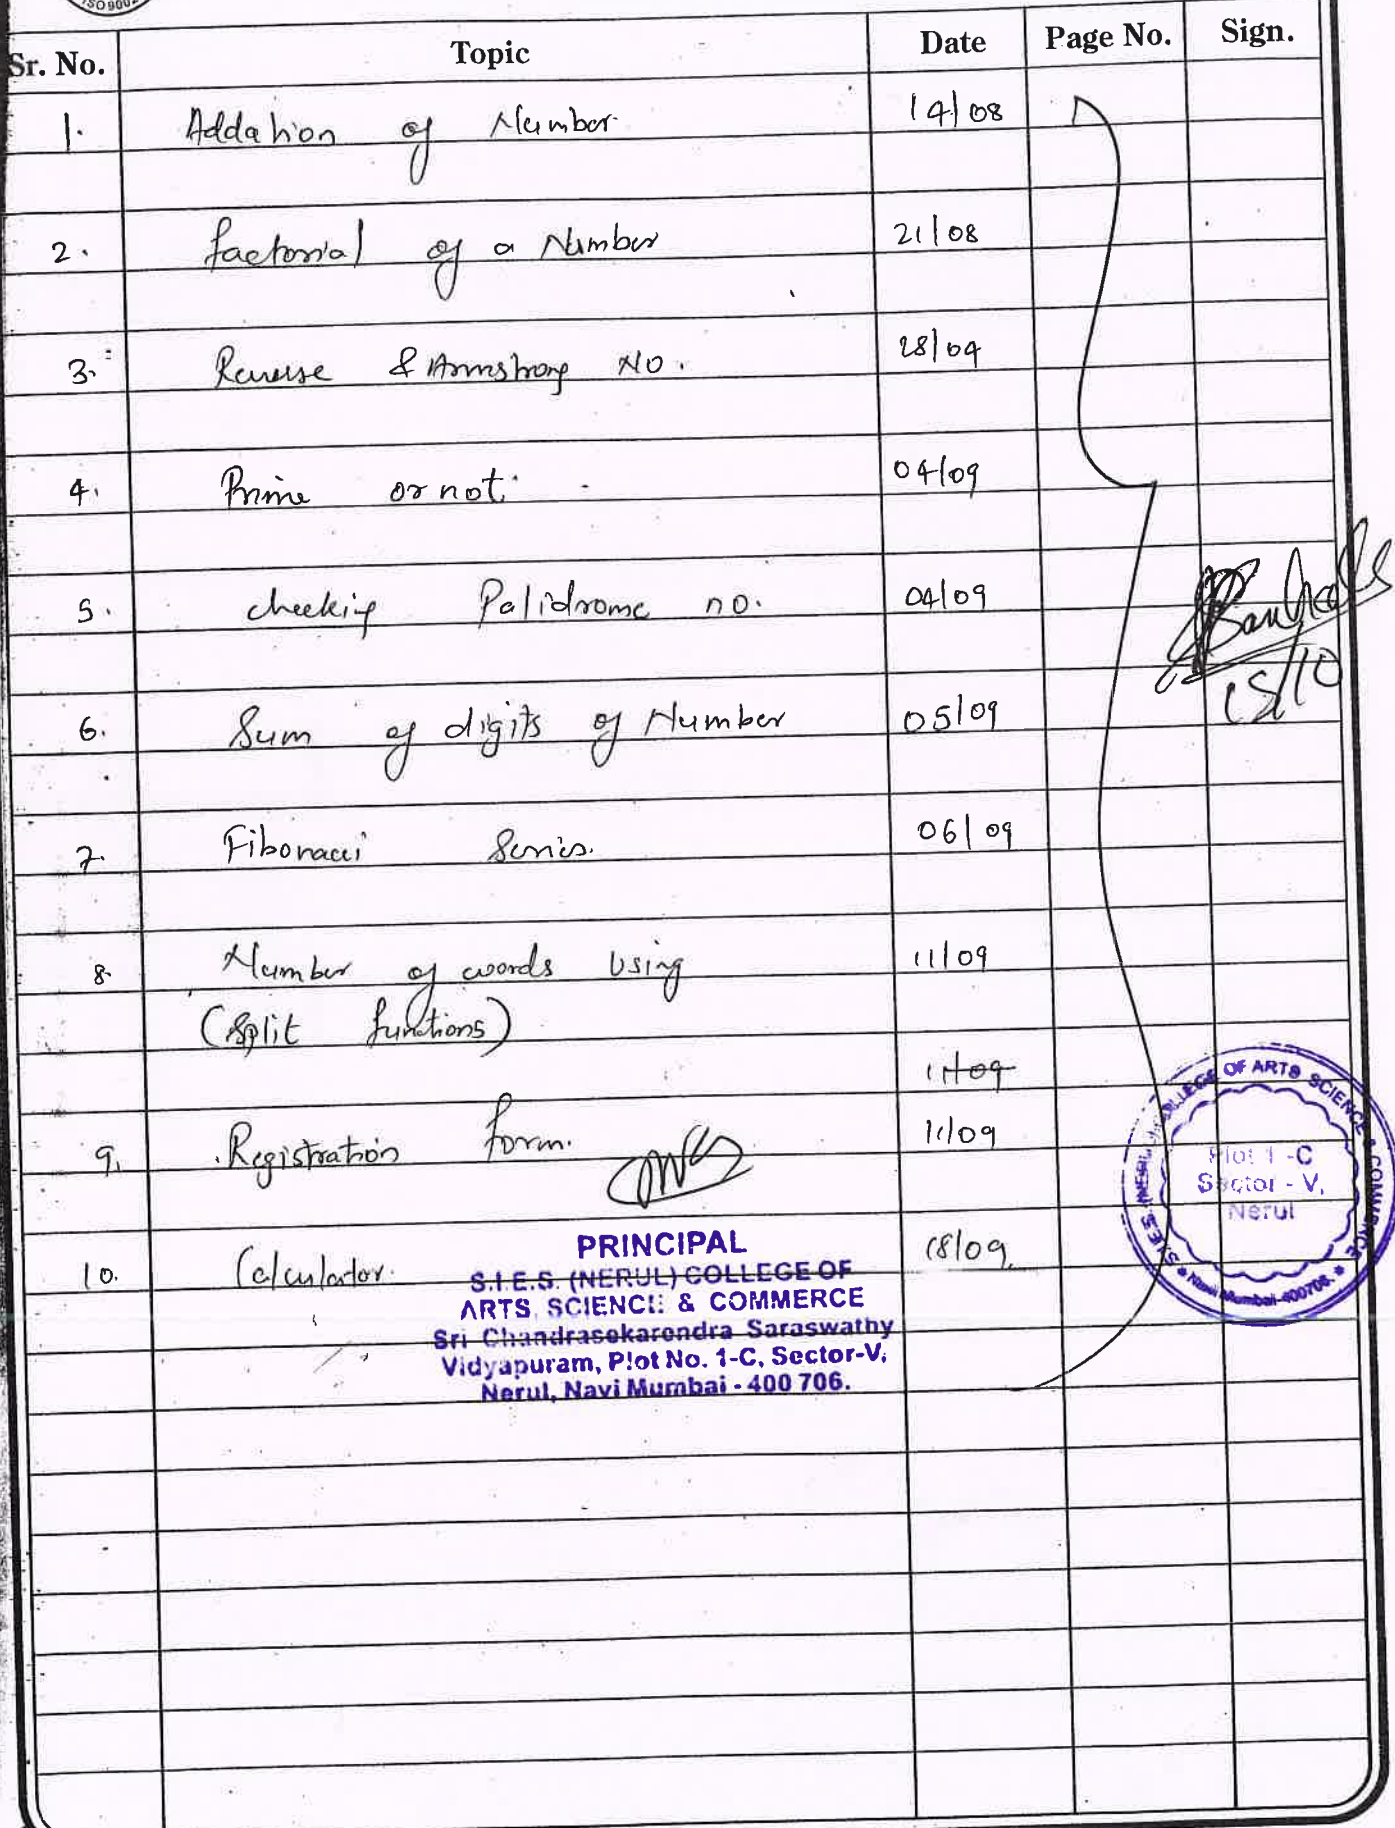 ISO 900
Sr. No. Topic Date Page No. Sign.
1. Addation of Number 14/08
2. factorial of a Number 21/08
3. Reverse & Armstrong NO. 28/09
4. Prime or not. 04/09
5. checking Palidrome no. 04/09
6. Sum of digits of Number 05/09
15/10
7. Fibonacci Series. 06/09
8. Number of words Using 11/09
(Split functions)
11/09
9. Registration form. 11/09
10. Calculator. 18/09.
PRINCIPAL
S.I.E.S. (NERUL) COLLEGE OF
ARTS, SCIENCE & COMMERCE
Sri Chandrasekarendra Saraswathy
Vidyapuram, Plot No. 1-C, Sector-V,
Nerul, Navi Mumbai - 400 706.
S.I.E.S. (NERUL) COLLEGE OF ARTS SCIENCE & COMMERCE
Navi Mumbai-400706.
Plot 1 -C
Sector - V,
Nerul